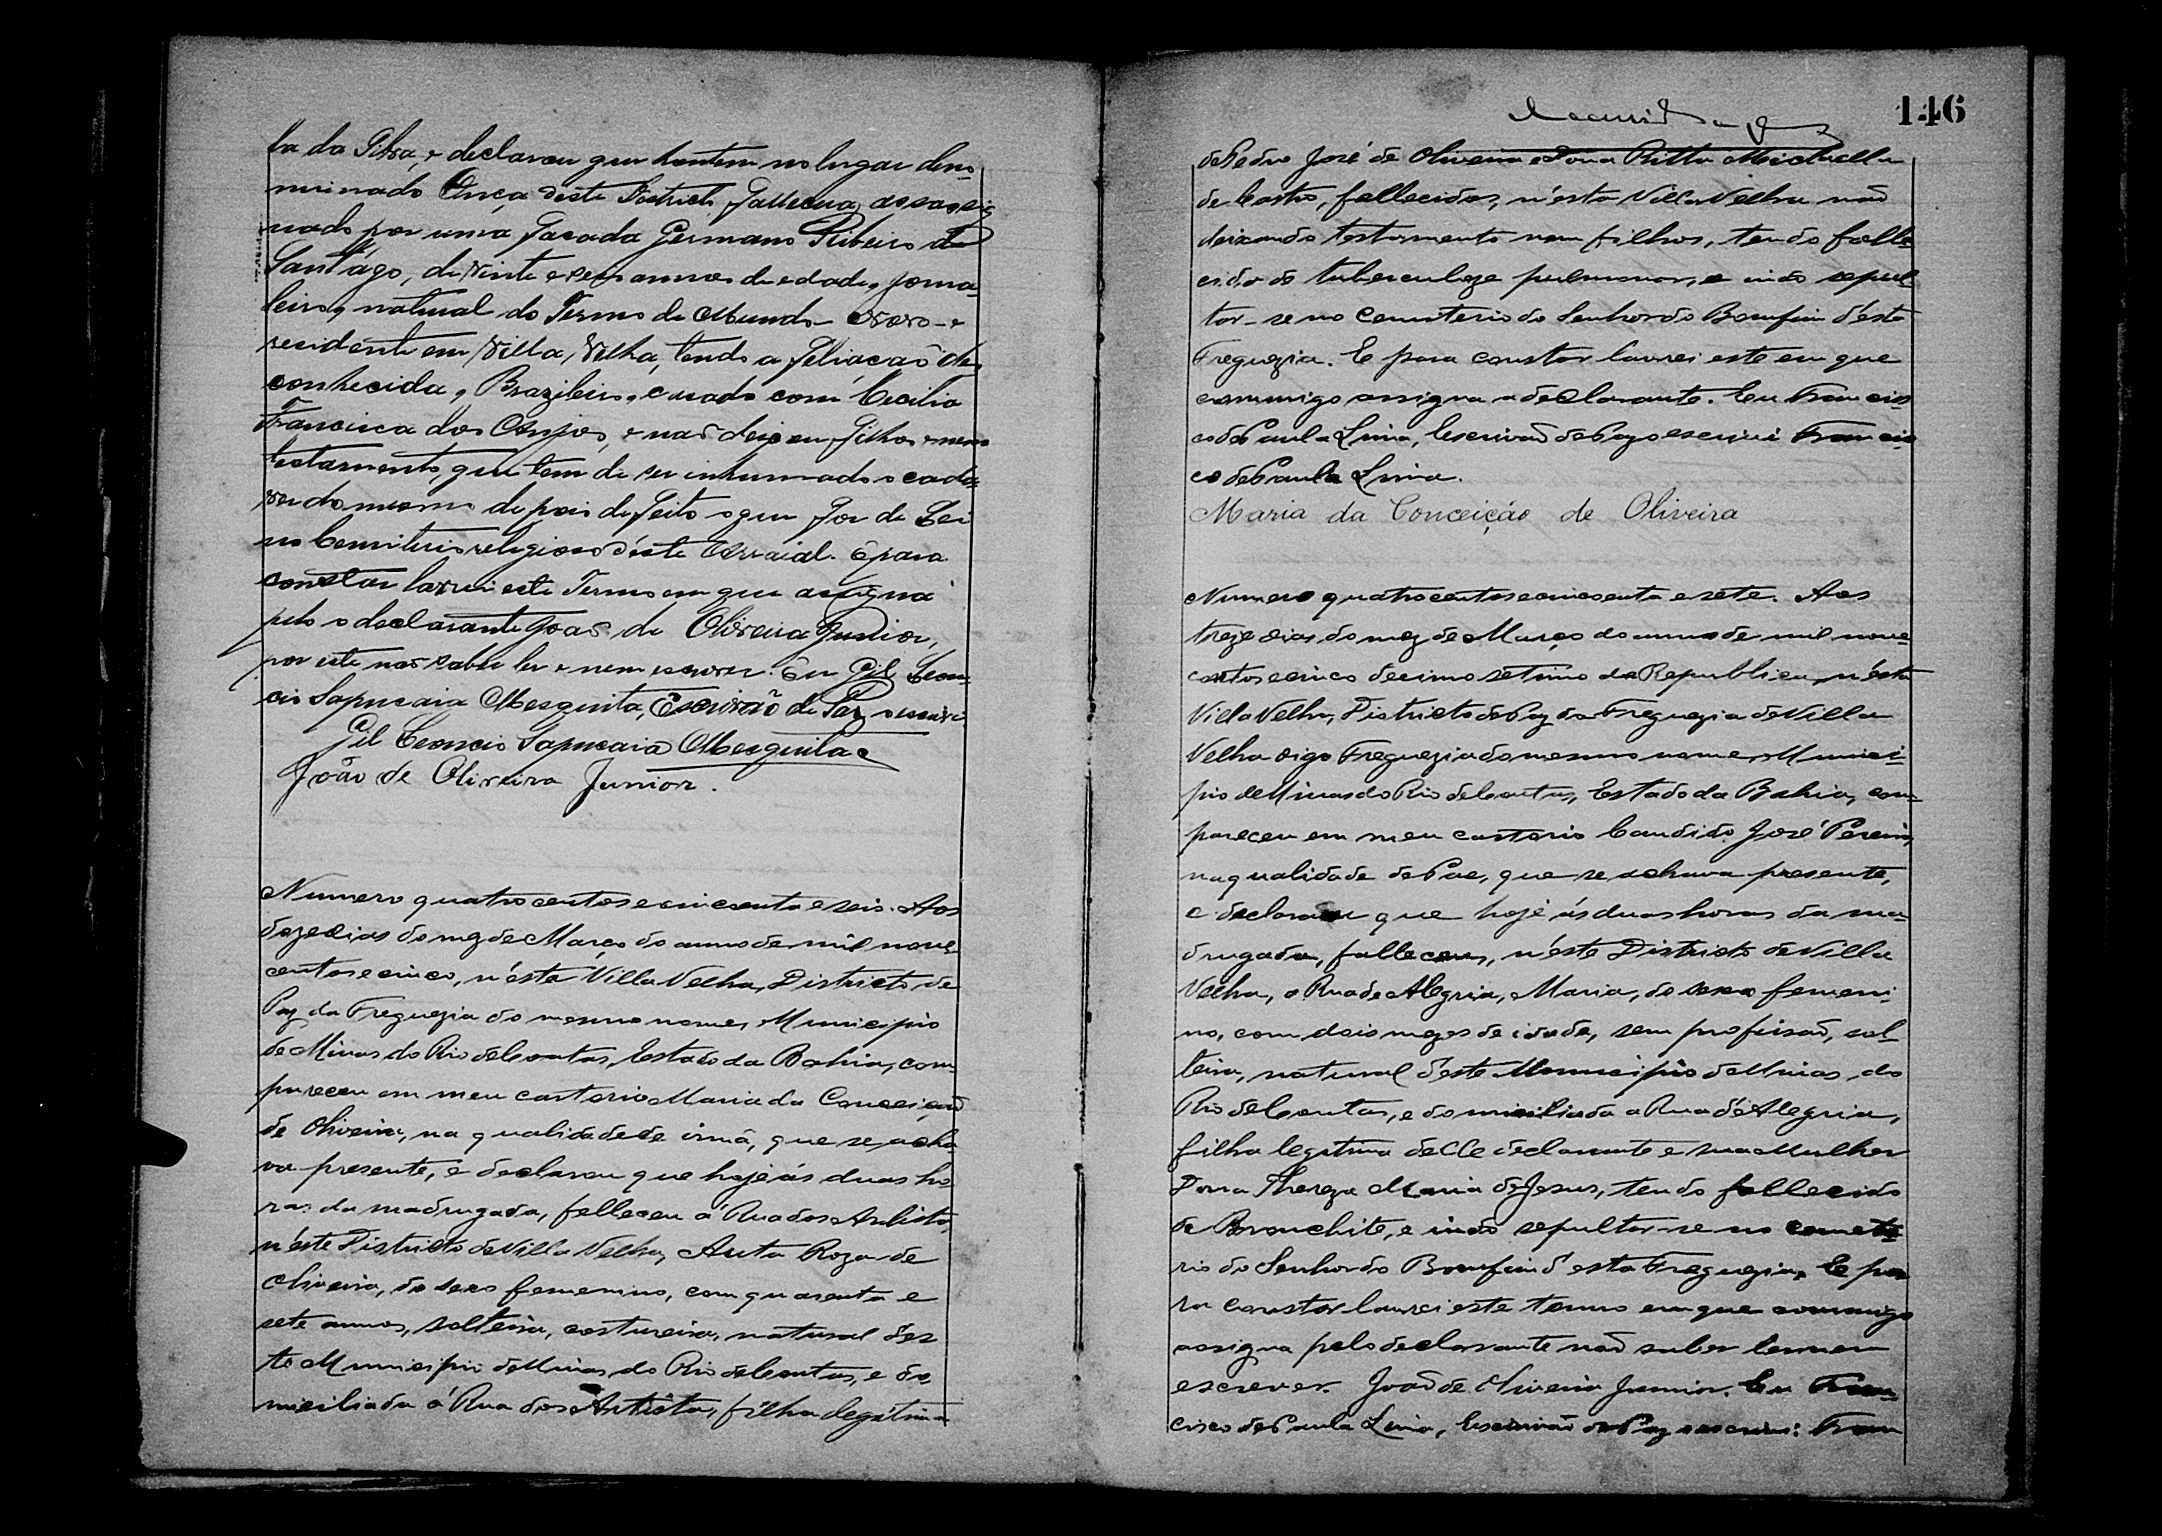 ta da Silva, e declarou que hontem no lugar deno
minado Onça deste Districto, falleceu assassi
nado por uma facada Germano Ribeiro de
Sant'ágo, de vinte e seis annos de edade, jorna-
leiro, natural do Termo de Mundo Novo e
residente em Villa Velha, tendo a filiação des
conhecida, Brazileiro, casado com Cecilia
Francisca dos Anjos, e não deixou filhos e nem
testamento, que tem de ser inhumado o cada-
ver do mesmo depois de feito o que for de Lei
no Cemiterio religioso d'éste Arraial. E para
constar lavrei este Termo em que assigna
pelo o declarante João de Oliveira Junior,
por este não saber ler e nem escrever. Eu Gil Leon-
cio Sapucaia Mesquita, Escrivão de Paz o escrivi
Gil Leoncio Sapucaia Mesquita
João de Oliveira Junior.
Numero quatrocentos e cincoenta e seis. Aos
doze dias do mez de Março do anno de mil nove
centos e cinco, n'ésta Villa Velha, Districto de
Paz da Freguezia do mesmo nome, Municipio
de Minas do Rio de Contas, Estado da Bahia, com
pareceu em meu cartorio Maria da Conceição
de Oliveira, na qualidade de irmã, que se acha
va presente, e declarou que hoje ás duas ho
ras da madrugada, falleceu á Rua dos Artista,
n'éste Districto de Villa Velha, Anta Roza de
Oliveira, do sexo femenino, com quarenta e
sete annos, solteira, costureira, natural des
te Municipio de Minas do Rio de Contas, e do
miciliada á Rua dos Artista, filha legitima
146
de Pedro José de Oliveira e Dona Ritta Michaella
de Castro, fallecidos, n'ésta Villa Velha não
deixando testamento nem filhos, tendo falle-
cido de tuberculoze pulmonar, e indo sepul
tar-se no Cemiterio do Senhor do Bomfim d'ésta
Freguezia. E para constar lavrei este em que
commigo assigna a declarante. Eu Francis
co de Paula Lima, Escrivão de Paz o escrivi Francis
co de Paula Lima.
Maria da Conceição de Oliveira
Numero quatrocentos e cincoenta e sete. Aos
treze dias do mez de Março do anno de mil nove-
centos e cinco decimo setimo da Republica, n'ésta
Villa Velha, Districto de Paz da Freguezia de Villa
Velha digo Freguezia do mesmo nome, Munici-
pio de Minas do Rio de Contas, Estado da Bahia, com-
pareceu em meu cartorio Candido José Pereira,
na qualidade de Pae, que se achava presente,
e declarou que hoje ás duas horas da ma-
drugada, falleceu, n'éste Districto de Villa
Velha, a Rua de Alegria, Maria, do sexo femeni-
no, com dois mezes de idade, sem profissão, sol-
teira, natural d'éste Municipio de Minas do
Rio de Contas, e domiciliada a Rua d'Alegria,
filha legitima delle declarante e sua Mulher
Dona Thereza Maria de Jesus, tendo fallecido
de Bronchite, e indo sepultar-se no cemite-
rio do Senhor do Bomfim d'esta Freguezia. E pa
ra constar lavrei este termo em que commigo
assigna pelo declarante não saber ler nem
escrever. João de Oliveira Junior. Eu Fran-
cisco de Paula Lima, Escrivão de Paz o escrivi: Fran